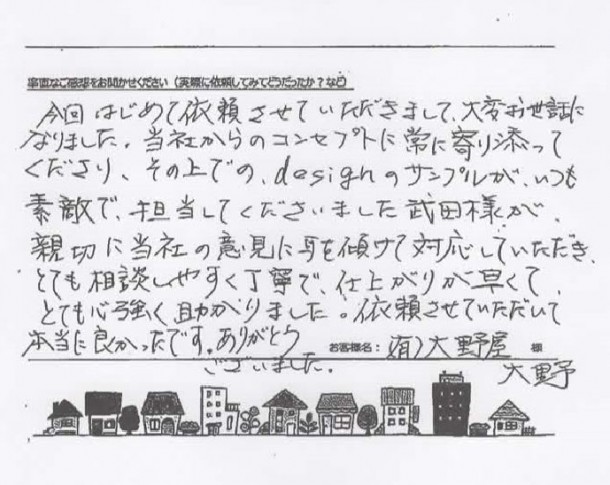 率直なご感想をお聞かせください（実際に依頼してみてどうだったか？など）
今回はじめて依頼させていただきまして、大変お世話に
なりました。当社からのコンセプトに常に寄り添って
くださり、その上での、designのサンプルが、いつも
素敵で、担当してくださいました武田様が、
親切に当社の意見に耳を傾けて対応していただき、
とても相談しやすく丁寧で、仕上がりが早くて、
とても心強く助かりました。依頼させていただいて
本当に良かったです。ありがとう
ございました。
お客様名：（有）大野屋 様
大野